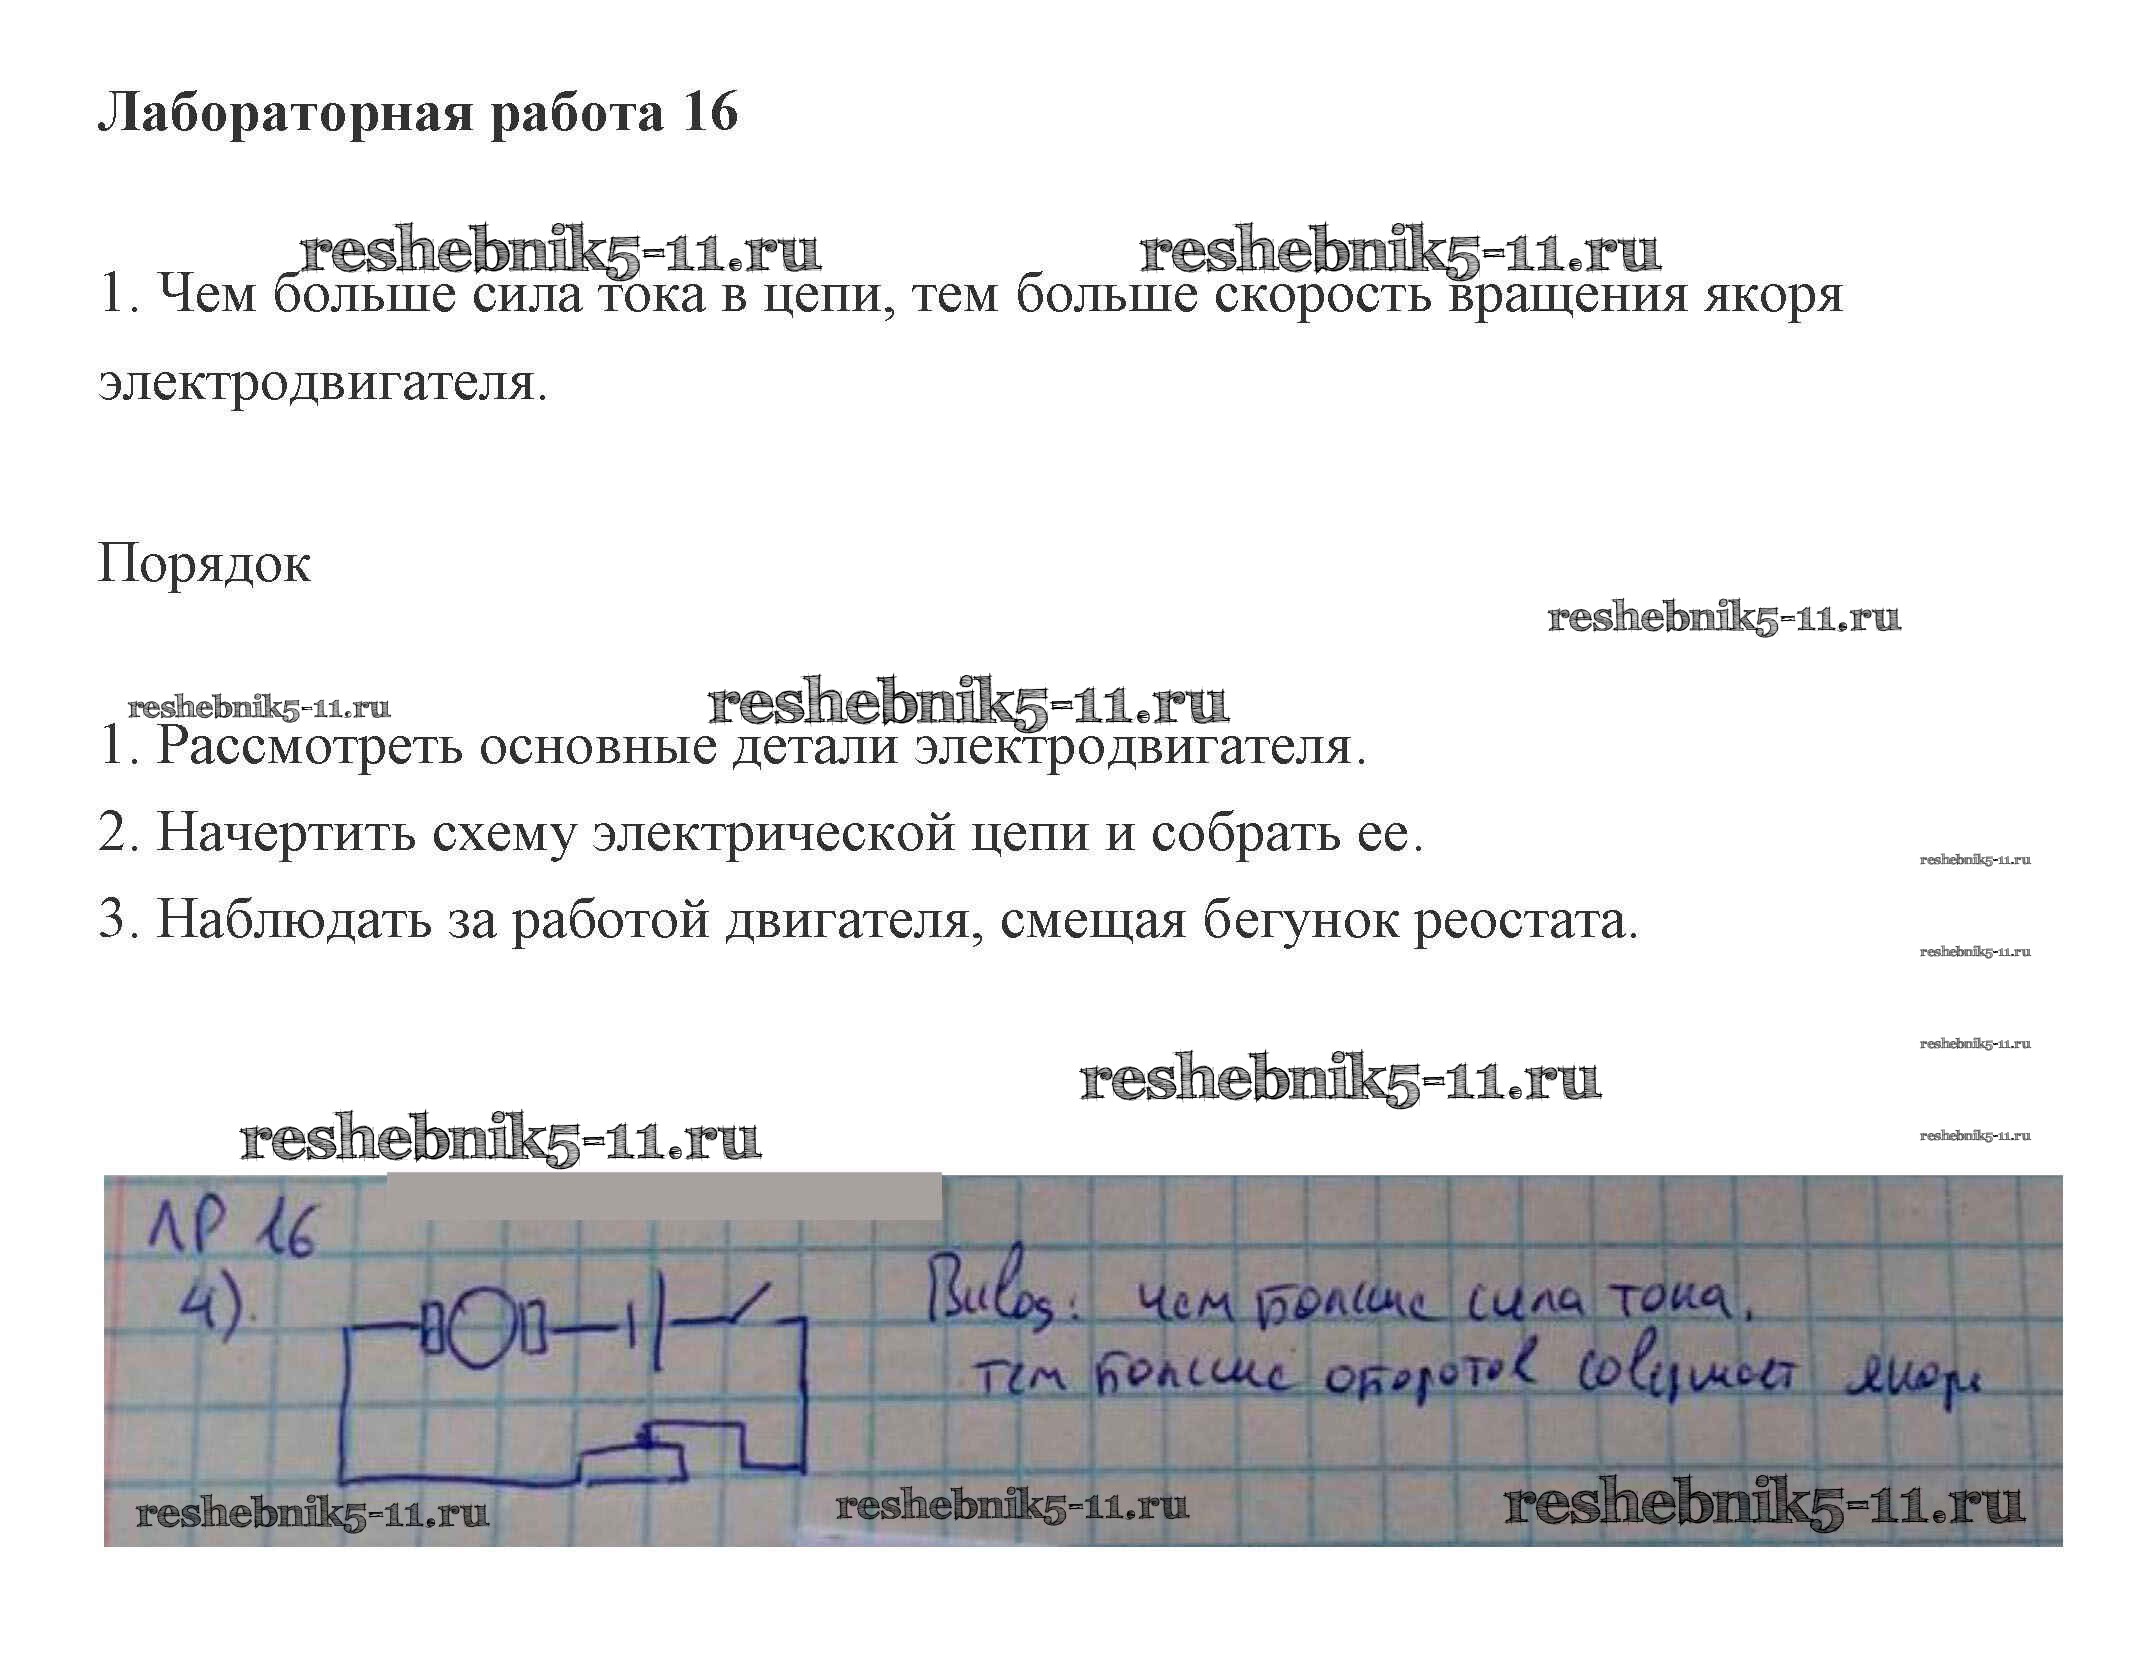 Лабораторная работа 16
reshebnik5-11.ru reshebnik5-11.ru
1. Чем больше сила тока в цепи, тем больше скорость вращения якоря
электродвигателя.
Порядок
reshebnik5-11.ru
reshebnik5-11.ru reshebnik5-11.ru
1. Рассмотреть основные детали электродвигателя.
2. Начертить схему электрической цепи и собрать ее.
reshebnik5-11.ru
3. Наблюдать за работой двигателя, смещая бегунок реостата.
reshebnik5-11.ru
reshebnik5-11.ru
reshebnik5-11.ru
reshebnik5-11.ru
reshebnik5-11.ru
ЛР 16
4).
Вывод: чем больше сила тока,
тем больше оборотов совершает якорь
reshebnik5-11.ru reshebnik5-11.ru reshebnik5-11.ru